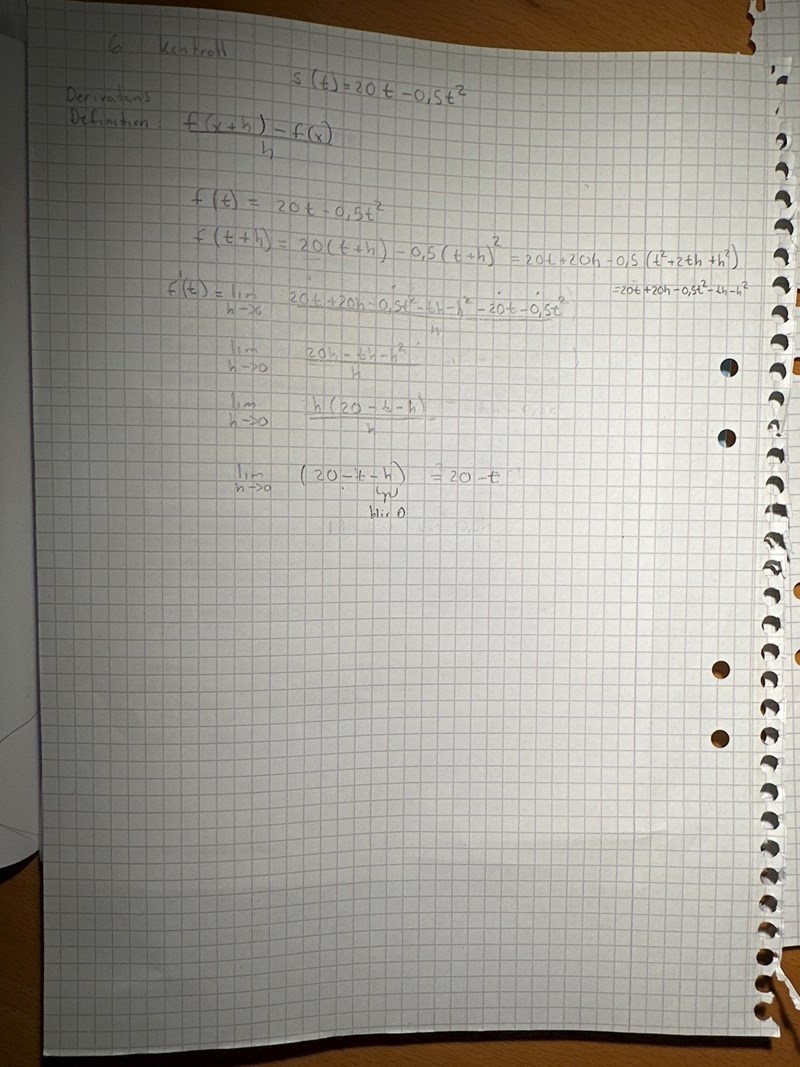 6 Kontroll
s(t) = 20t - 0,5t²
Derivatans
Definition: f(x+h) - f(x)
h
f(t) = 20t - 0,5t²
f(t+h) = 20(t+h) - 0,5(t+h)² = 20t + 20h - 0,5(t² + 2th + h²)
= 20t + 20h - 0,5t² - th - h²
f'(t) = lim 20t + 20h - 0,5t² - th - h² - 20t - 0,5t²
h→0 h
lim 20h - th - h²
h→0 h
lim h(20 - t - h)
h→0 h
lim (20 - t - h) = 20 - t
h→0
blir 0